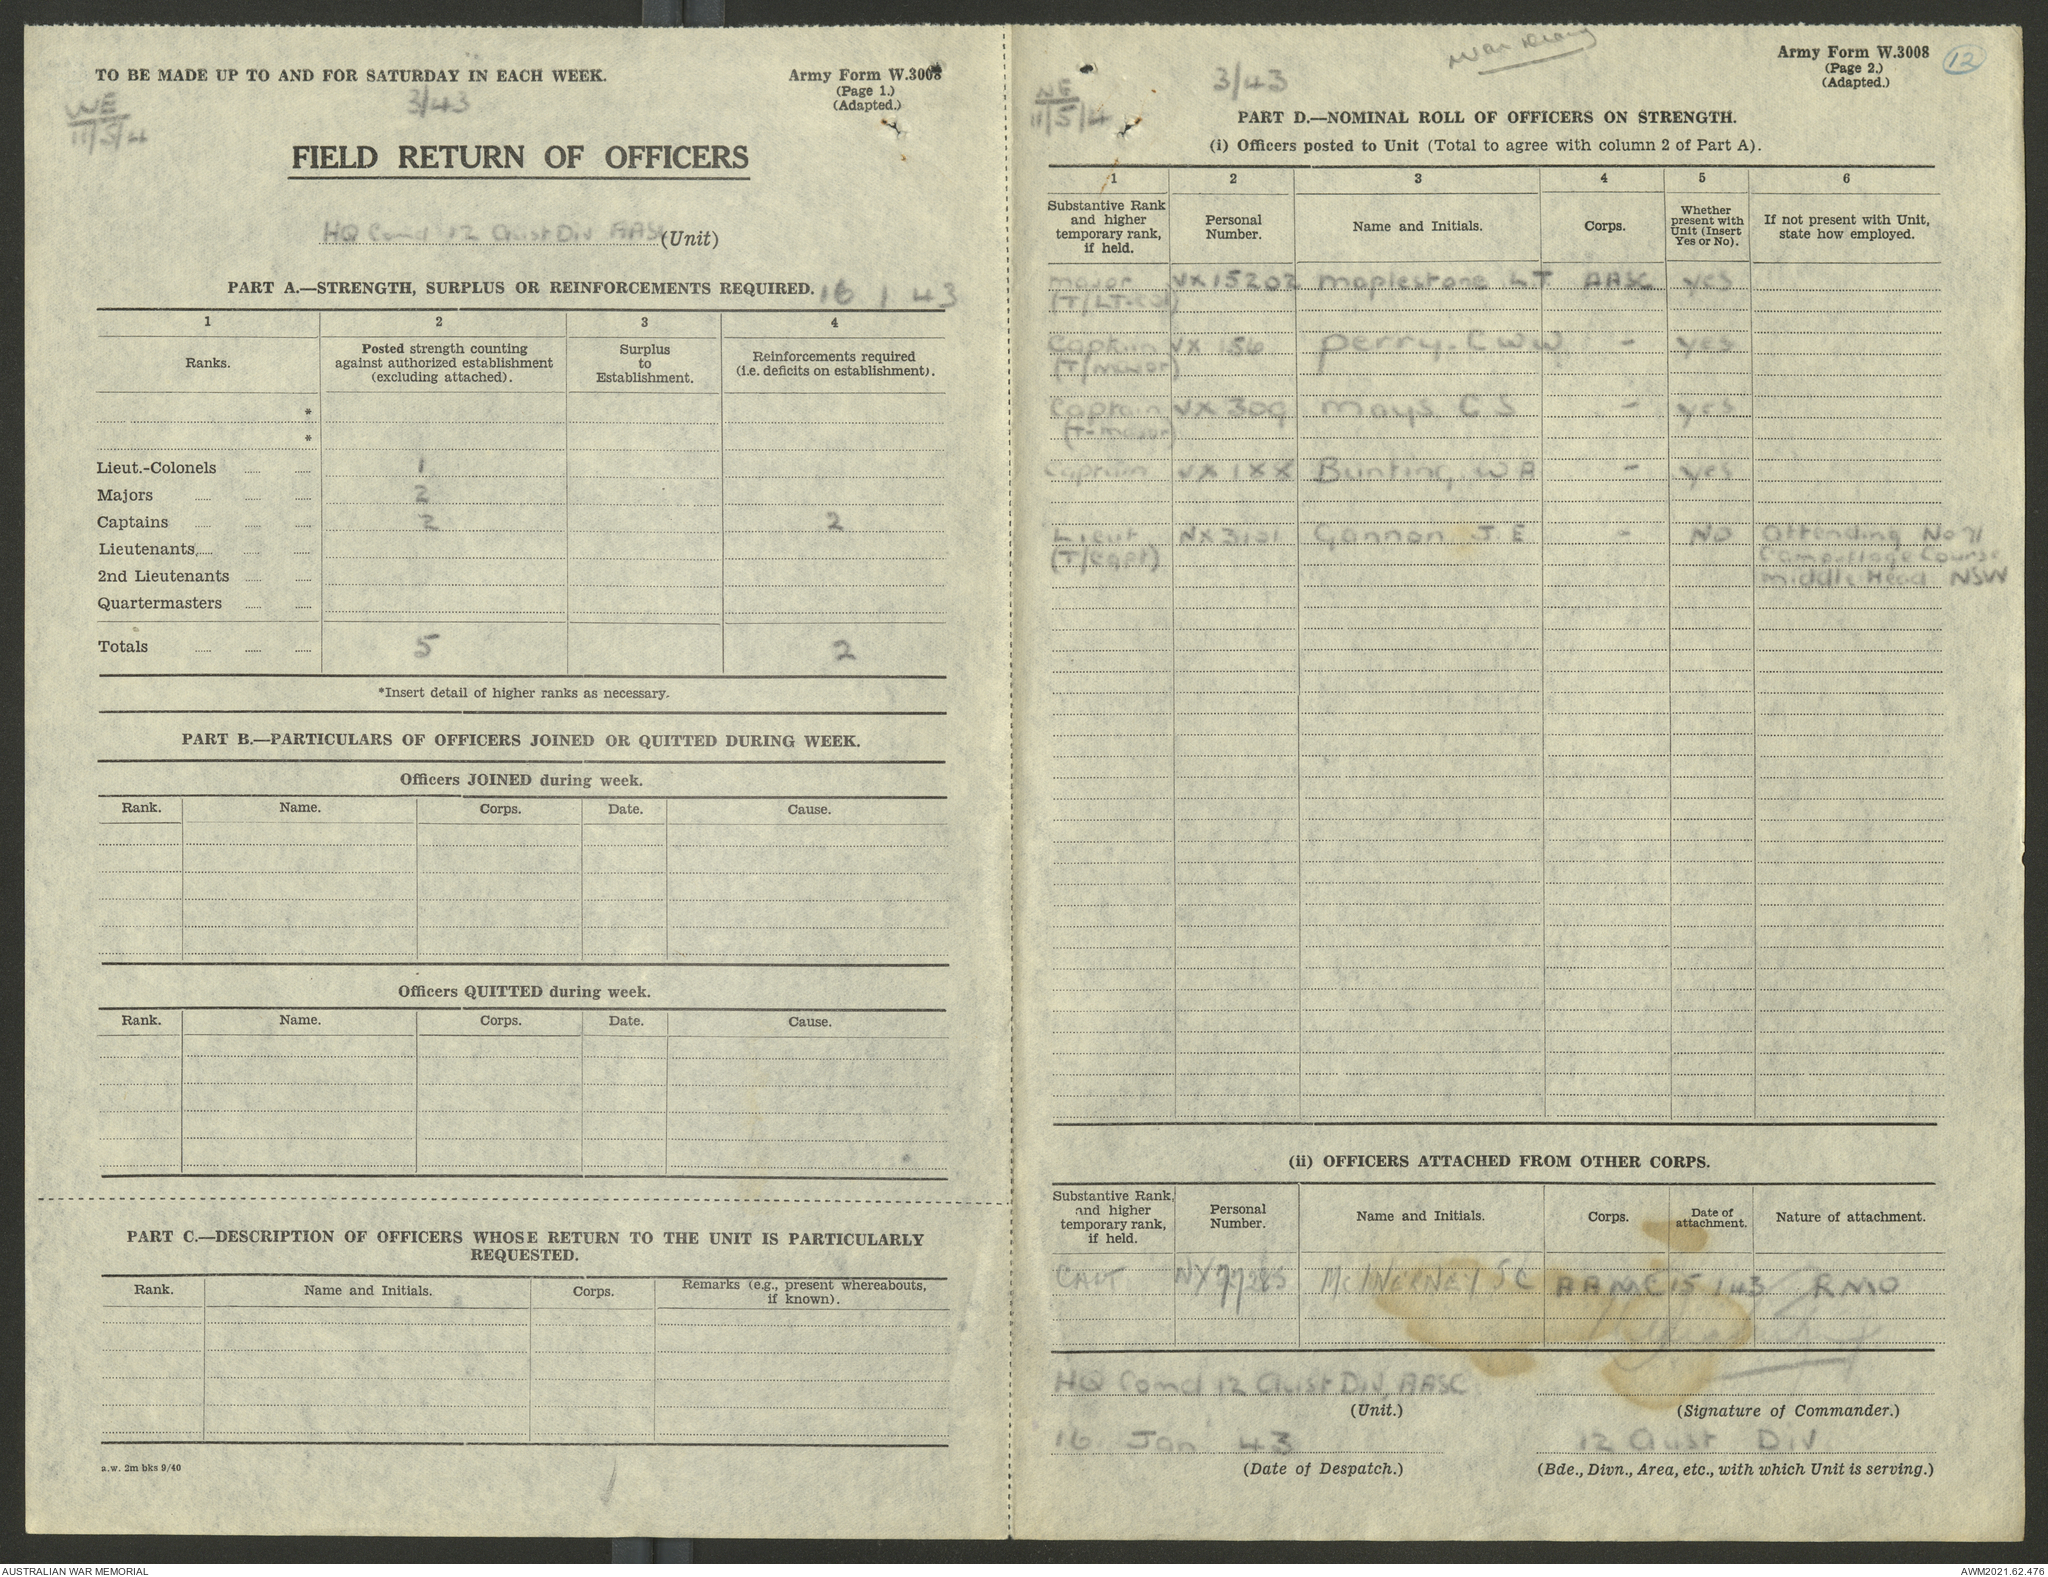 TO BE MADE UP TO AND FOR SATURDAY IN EACH WEEK.
Army Form W.3008
(Page 1.)
(Adapted.)
WE
11/5/4
3/43
FIELD RETURN OF OFFICERS
HQ Comd 12 Aust Div AASC (Unit)
PART A.—STRENGTH, SURPLUS OR REINFORCEMENTS REQUIRED. 16 1 43
1 2 3 4
Ranks.
Posted strength counting against authorized establishment (excluding attached).
Surplus to Establishment.
Reinforcements required (i.e. deficits on establishment).
*
*
Lieut.-Colonels ..... ..... 1
Majors ..... ..... ..... 2
Captains ..... ..... ..... 2 2
Lieutenants, ..... ..... .....
2nd Lieutenants ..... .....
Quartermasters ..... .....
Totals ..... ..... ..... 5 2
*Insert detail of higher ranks as necessary.
PART B.—PARTICULARS OF OFFICERS JOINED OR QUITTED DURING WEEK.
Officers JOINED during week.
Rank. Name. Corps. Date. Cause.
Officers QUITTED during week.
Rank. Name. Corps. Date. Cause.
PART C.—DESCRIPTION OF OFFICERS WHOSE RETURN TO THE UNIT IS PARTICULARLY
REQUESTED.
Rank. Name and Initials. Corps. Remarks (e.g., present whereabouts, if known).
a.w. 2m bks 9/40
War Diary
Army Form W.3008
(Page 2.)
(Adapted.)
12
WE
11/5/4
3/43
PART D.—NOMINAL ROLL OF OFFICERS ON STRENGTH.
(i) Officers posted to Unit (Total to agree with column 2 of Part A).
1 2 3 4 5 6
Substantive Rank and higher temporary rank, if held.
Personal Number.
Name and Initials.
Corps.
Whether present with Unit (Insert Yes or No).
If not present with Unit, state how employed.
Major VX15202 Maplestone L.T. AASC yes
(T/LT-Col)
Captain VX 156 Perry. C W W - yes
(T/Major)
Captain VX 309 Mays C S - yes
(T-Major)
Captain VX 1XX Bunting, W A - yes
Lieut NX3101 Gannon J.E - NO Attending No 71
(T/Capt) Camouflage Course
Middle Head NSW
(ii) OFFICERS ATTACHED FROM OTHER CORPS.
Substantive Rank, and higher temporary rank, if held.
Personal Number.
Name and Initials.
Corps.
Date of attachment.
Nature of attachment.
CAPT NX77285 McINERNEY S C AAMC 15 1 43 RMO
HQ Comd 12 Aust Div, AASC
(Unit.)
(Signature of Commander.)
16 Jan 43
12 Aust Div
(Date of Despatch.)
(Bde., Divn., Area, etc., with which Unit is serving.)
AUSTRALIAN WAR MEMORIAL
AWM2021.62.476